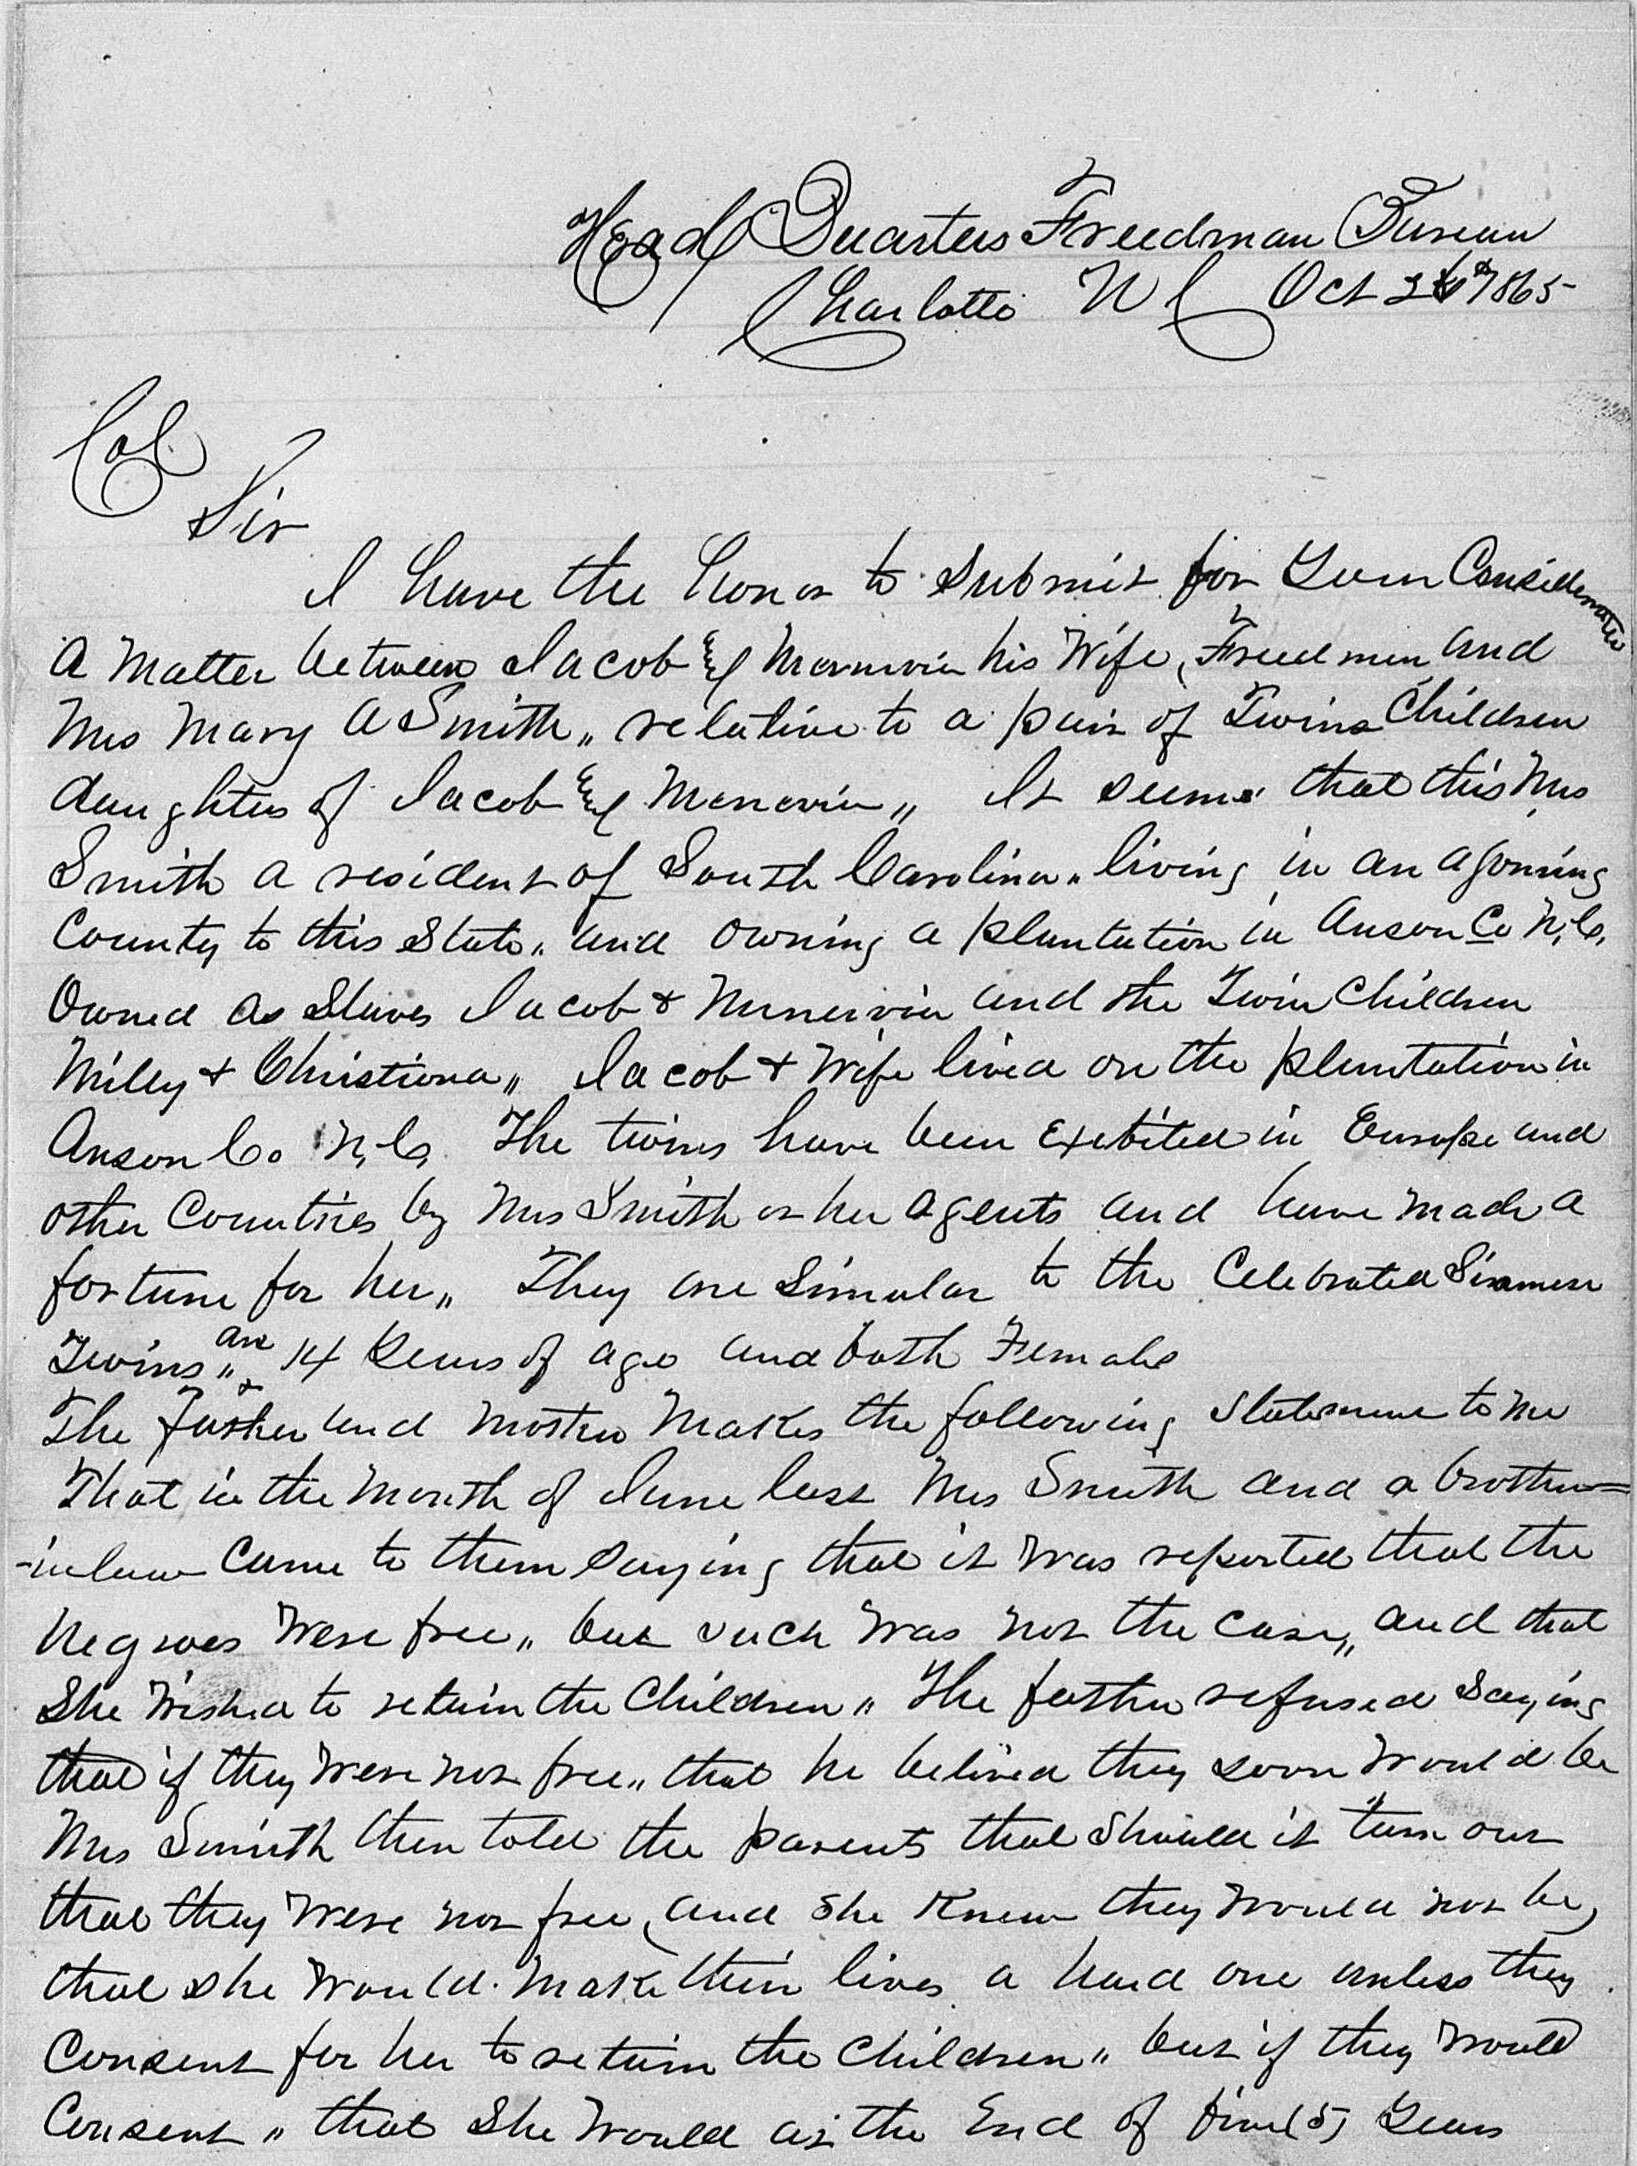 Head Quarters Freedman Bureau
Charlotte N C Oct 1865
Col
Sir
I have the honor to Submit for Your Consideration
A Matter between Jacob & Menervia his Wife, Freedmen and
Mrs Mary A Smith„ relative to a pair of Twins Children
daughters of Jacob & Menervia„ It seems that this Mrs
Smith a resident of South Carolina„ living in an ajoining
County to this State„ and owning a plantation in Anson Co N,C,
Owned as Slaves Jacob & Menervia and the Twin Children
Milly & Christiena„ Jacob & Wife lived on the plantation in
Anson Co N,C, The twins have been Exebited in Europe and
other Countries by Mrs Smith or her agents and have made a
fortune for her„ They are Simular to the Celebrated Siamese
Twins„ are 14 Years of age and both Female
The father and mother Makes the following Statement to me
That in the Month of June last Mrs Smith and a brother=
-inlaw Came to them Saying that it was reported that the
Negroes were free„ but such was not the case„ and that
She Wished to retain the Children„ The father refused Saying
that if they were not free„ that he belived they soon would be
Mrs Smith then told the parents that should it turn out
that they were not free, and She Knew they would not be,
that she would make their lives a hard one unless they
Consent for her to retain the Children„ but if they would
Consent„ that She would at the End of five (5) Years